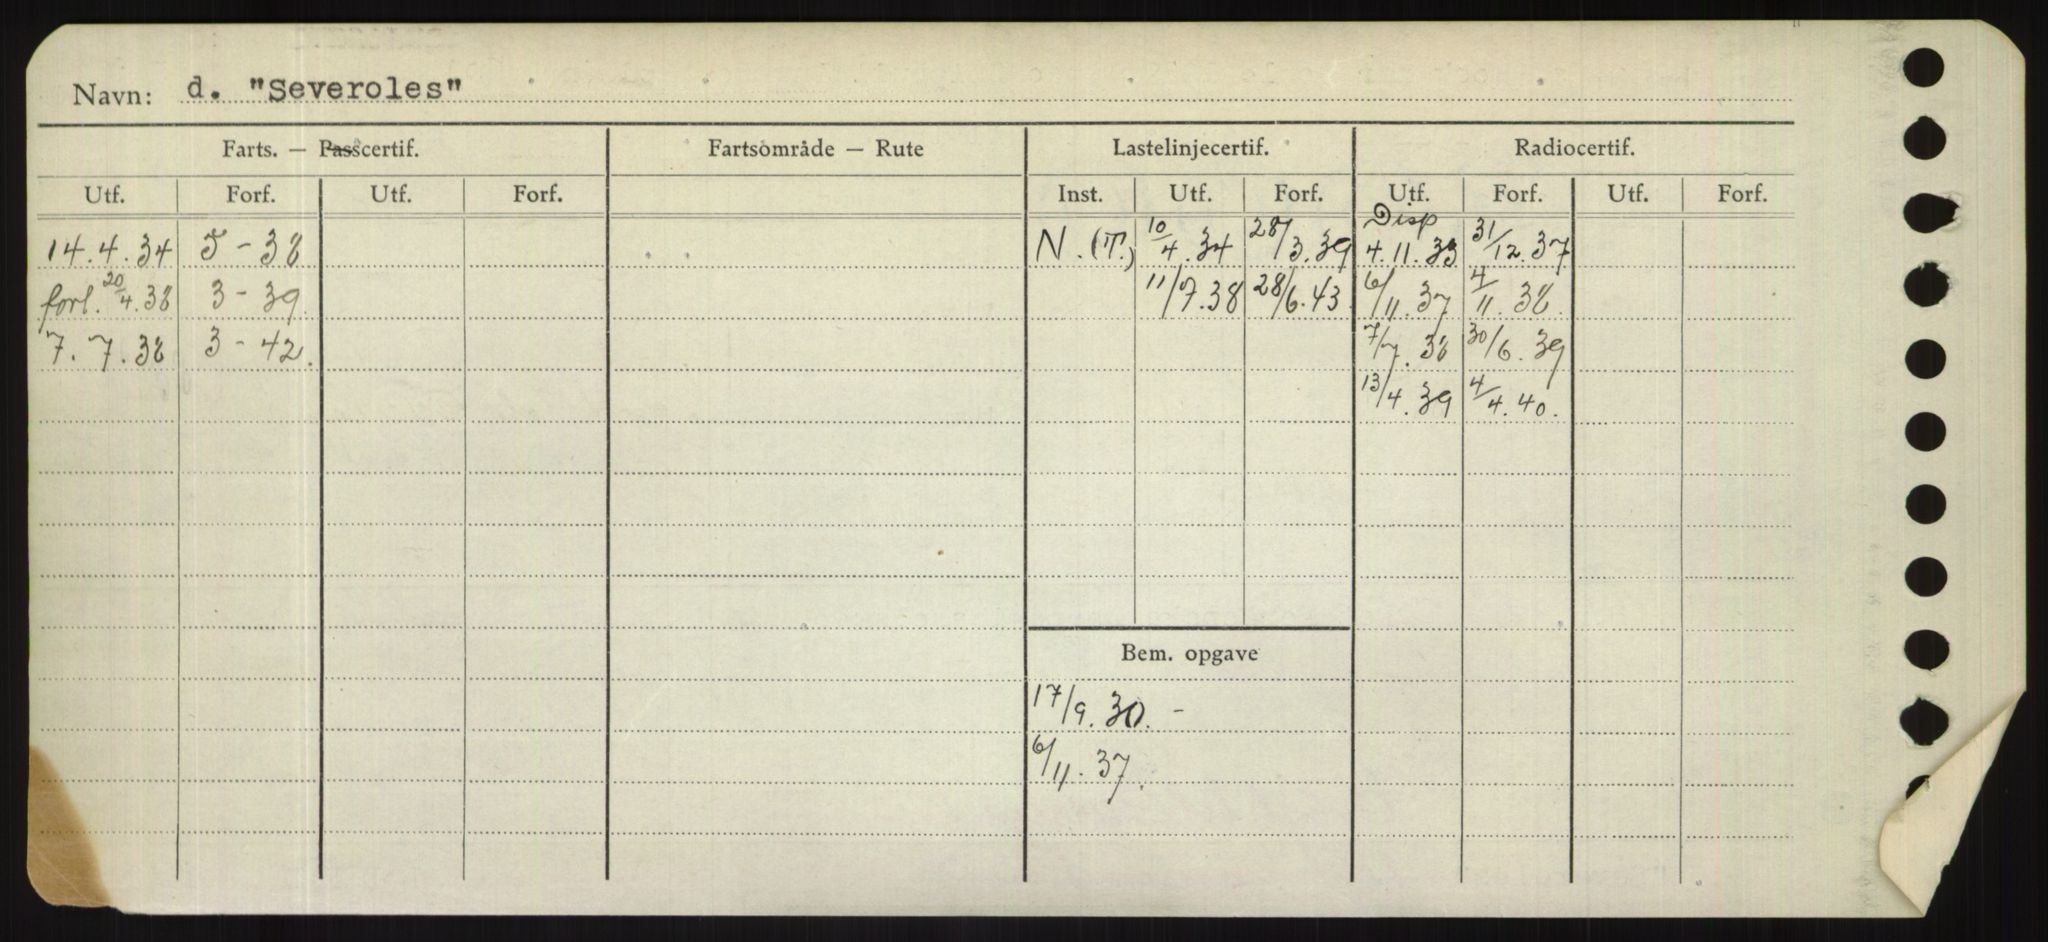 Navn: d. "Severoles"
Farts. — Passcertif. Fartsområde — Rute Lastelinjecertif. Radiocertif.
Utf. Forf. Utf. Forf. Inst. Utf. Forf. Utf. Forf. Utf. Forf.
Disp
14.4.34 5-38 N.(T.) 10/4.34 28/3.39 4.11.33 31/12.37
forl. 20/4.38 3-39. 11/7.38 28/6.43 6/11.37 4/11.38.
7.7.38 3-42. 7/7.38 30/6.39
13/4.39 4/4.40.
Bem. opgave
17/9.30.-
6/11.37.